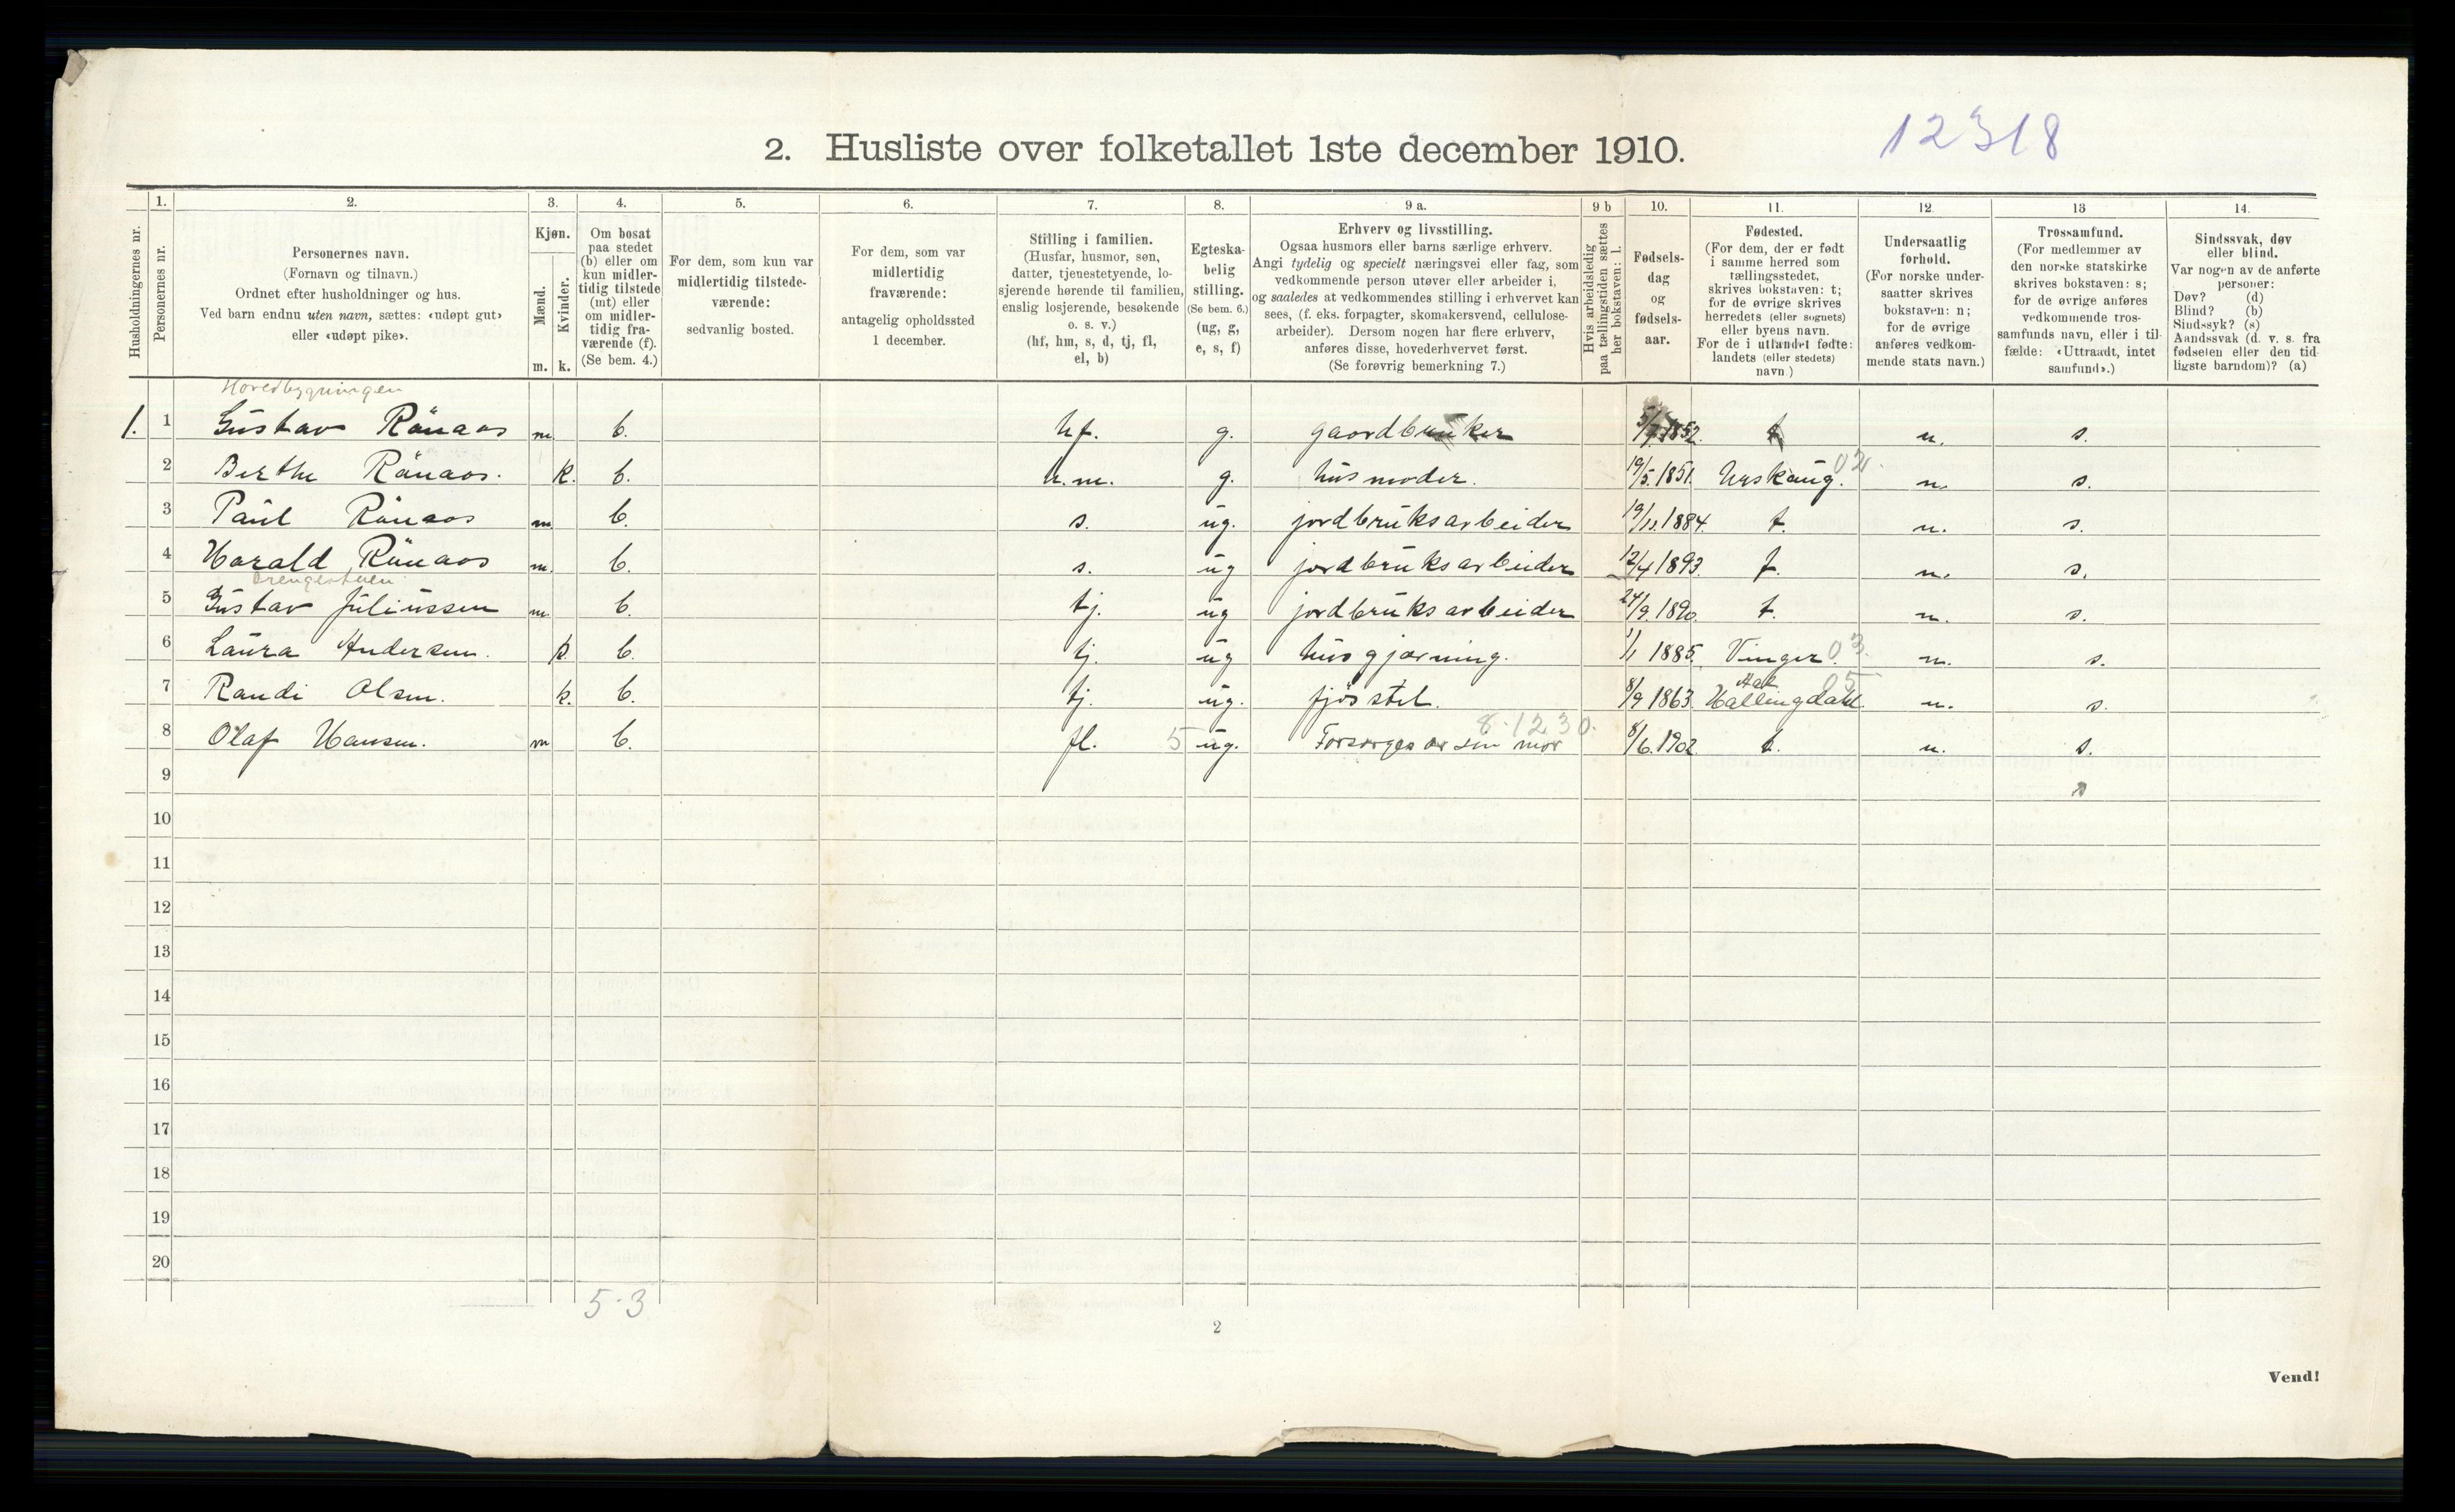 12318
2. Husliste over folketallet 1ste december 1910.
Husholdningernes nr.
1.
Personernes nr.
2.
Personernes navn.
(Fornavn og tilnavn.)
Ordnet efter husholdninger og hus.
Ved barn endnu uten navn, sættes: «udøpt gut»
eller «udøpt pike».
3.
Kjøn.
Mænd.
Kvinder.
m. k.
4.
Om bosat
paa stedet
(b) eller om
kun midler-
tidig tilstede
(mt) eller
om midler-
tidig fra-
værende (f).
(Se bem. 4.)
5.
For dem, som kun var
midlertidig tilstede-
værende:
sedvanlig bosted.
6.
For dem, som var
midlertidig
fraværende:
antagelig opholdssted
1 december.
7.
Stilling i familien.
(Husfar, husmor, søn,
datter, tjenestetyende, lo-
sjerende hørende til familien,
enslig losjerende, besøkende
o. s. v.)
(hf, hm, s, d, tj, fl,
el, b)
8.
Egteska-
belig
stilling.
(Se bem. 6.)
(ug, g,
e, s, f)
9 a.
Erhverv og livsstilling.
Ogsaa husmors eller barns særlige erhverv.
Angi tydelig og specielt næringsvei eller fag, som
vedkommende person utøver eller arbeider i,
og saaledes at vedkommendes stilling i erhvervet kan
sees, (f. eks. forpagter, skomakersvend, cellulose-
arbeider). Dersom nogen har flere erhverv,
anføres disse, hovederhvervet først.
(Se forøvrig bemerkning 7.)
9 b
Hvis arbeidsledig
paa tællingstiden sættes
her bokstaven: l.
10.
Fødsels-
dag
og
fødsels-
aar.
11.
Fødested.
(For dem, der er født
i samme herred som
tællingsstedet,
skrives bokstaven: t;
for de øvrige skrives
herredets (eller sognets)
eller byens navn.
For de i utlandet fødte:
landets (eller stedets)
navn.)
12.
Undersaatlig
forhold.
(For norske under-
saatter skrives
bokstaven: n;
for de øvrige
anføres vedkom-
mende stats navn.)
13
Trossamfund.
(For medlemmer av
den norske statskirke
skrives bokstaven: s;
for de øvrige anføres
vedkommende tros-
samfunds navn, eller i til-
fælde: «Uttraadt, intet
samfund».)
14.
Sindssvak, døv
eller blind.
Var nogen av de anførte
personer:
Døv? (d)
Blind? (b)
Sindssyk? (s)
Aandssvak (d. v. s. fra
fødselen eller den tid-
ligste barndom)? (a)
Hovedbygningen
1. 1 Gustav Rånaas m. b. hf. g. gaardbruker 1852. t n. s.
2 Berthe Rånaas. k. b. h.m. g. husmoder. 19/5.1851. Urskaug. 02. n. s.
3 Paul Rånaas m. b. s. ug. jordbruksarbeider 19/11.1884. t. n. s.
4 Harald Rånaas m. b. s. ug jordbruksarbeider 12/4 1893. t. n. s.
Drengestuen
5 Gustav Juliussen m. b. tj. ug jordbruksarbeider 24/9.1890. t. n. s.
6 Laura Andersen. k. b. tj. ug husgjærning. 1/1 1885. Vinger. 03. n. s.
7 Randi Olsen. k. b. tj. ug. fjösstel. 8/9 1863 Hallingdahl. 05 n. s.
8 - 1230.
8 Olaf Hansen. m b. fl. 5 ug. Forsørges av sin mor 8/6.1902. t. n. s.
9
10
11
12
13
14
15
16
17
18
19
20
5-3
2
Vend!